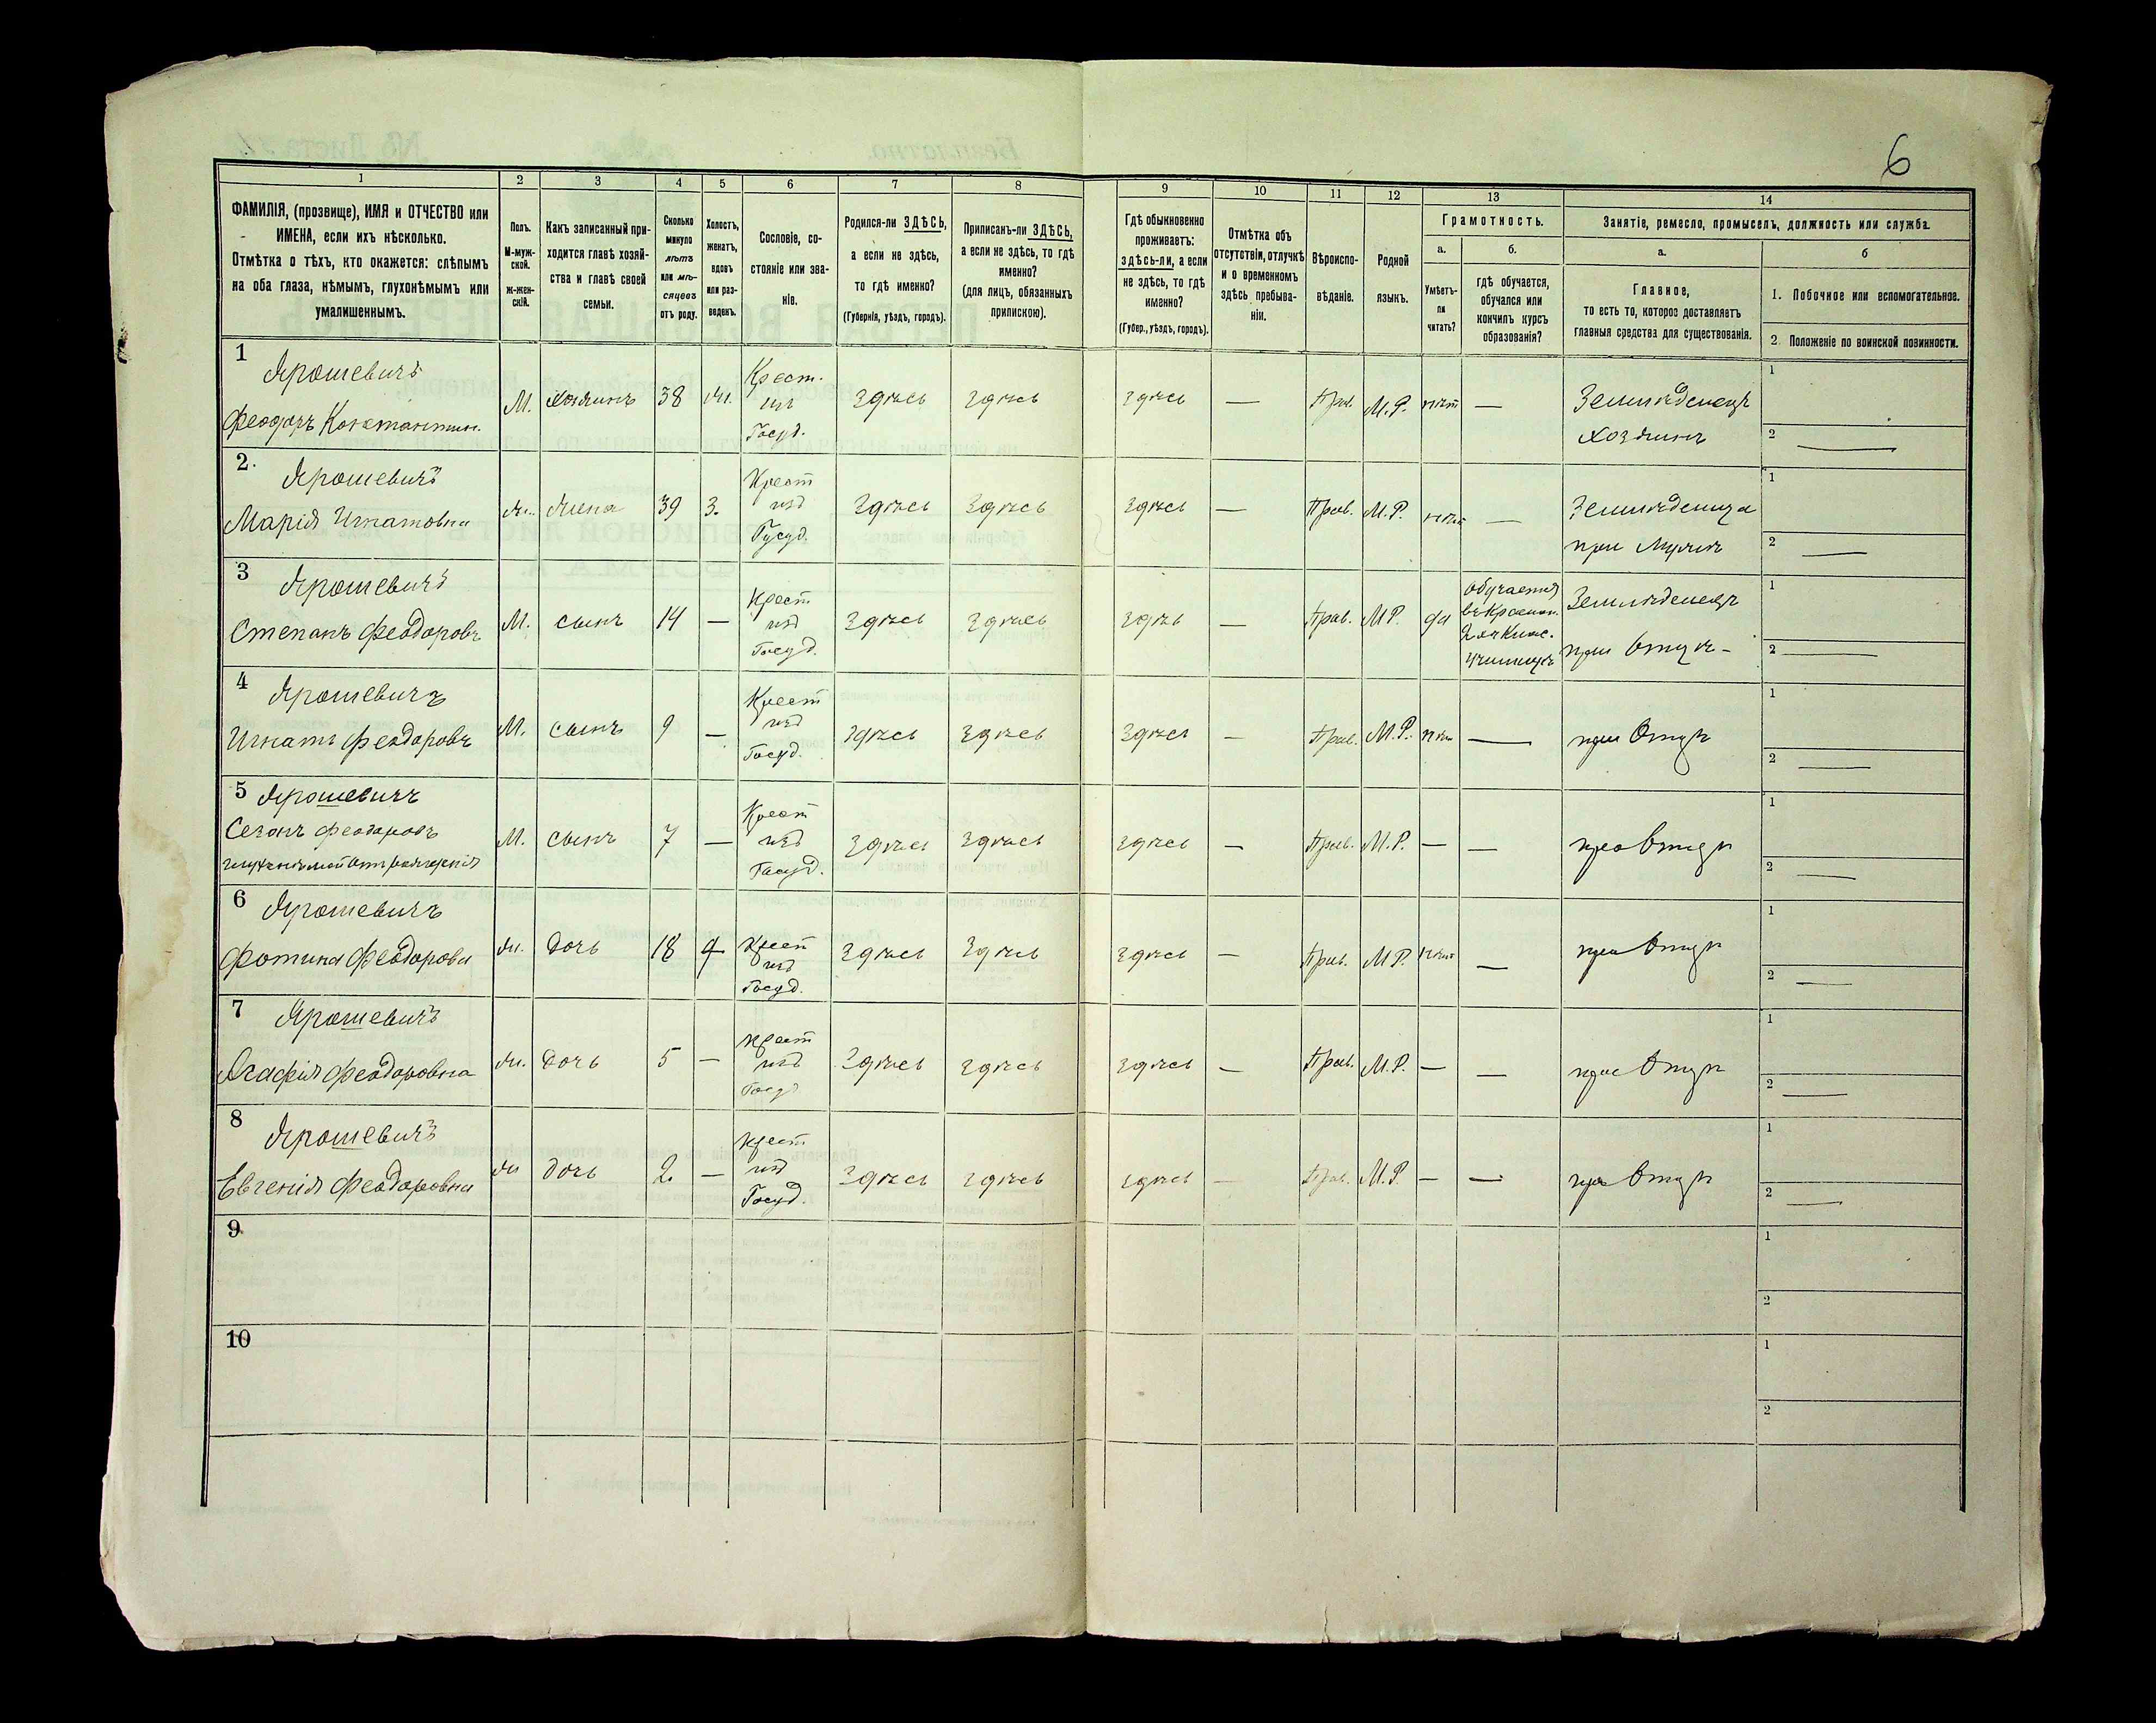 6
1 2 3 4 5 6 7 8 9 10 11 12 13 14
ФАМИЛІЯ, (прозвище), ИМЯ и ОТЧЕСТВО или
ИМЕНА, если ихъ нѣсколько.
Отмѣтка о тѣхъ, кто окажется: слѣпымъ
на оба глаза, нѣмымъ, глухонѣмымъ или
умалишеннымъ.
Полъ.
М-муж-
ской.
Ж-жен-
скій.
Какъ записанный при-
ходится главѣ хозяй-
ства и главѣ своей
семьи.
Сколько
минуло
лѣтъ
или мѣ-
сяцевъ
отъ роду.
Холостъ,
женатъ,
вдовъ
или раз-
веденъ.
Сословіе, со-
стояніе или зва-
ніе.
Родился-ли ЗДѢСЬ,
а если не здѣсь,
то гдѣ именно?
(Губернія, уѣздъ, городъ).
Приписанъ-ли ЗДѢСЬ,
а если не здѣсь, то гдѣ
именно?
(для лицъ, обязанныхъ
припискою).
Гдѣ обыкновенно
проживаетъ:
здѣсь-ли, а если
не здѣсь, то гдѣ
именно?
(Губер., уѣздъ, городъ).
Отмѣтка объ
отсутствіи, отлучкѣ
и о временномъ
здѣсь пребыва-
ніи.
Вѣроиспо-
вѣданіе.
Родной
языкъ.
Грамотность.
а.
Умѣетъ-
ли
читать?
б.
гдѣ обучается,
обучался или
кончилъ курсъ
образованія?
Занятіе, ремесло, промыселъ, должность или служба.
а.
Главное,
то есть то, которое доставляетъ
главныя средства для существованія.
б
1. Побочное или вспомогательное.
2. Положеніе по воинской повинности.
1
Ярошевичъ
Феодоръ Константин.
М. Хозяинъ 38 Ж.
Крест.
изъ
Госуд.
Здѣсь Здѣсь Здѣсь — Прав. М.Р. нѣт —
Земледѣлецъ
Хозяинъ
1
2 —
2.
Ярошевичъ
Марія Игнатовна
Ж. Жена 39 З.
Крест
изъ
Госуд.
Здѣсь Здѣсь Здѣсь — Прав. М.Р. нѣт —
Земледѣлица
при Мужѣ
1
2 —
3
Ярошевичъ
Степанъ Феодоровъ
М. сынъ 14 —
Крест
изъ
Госуд.
Здѣсь Здѣсь Здѣсь — Прав. М.Р. да
Обучается
училищѣ
Земледѣлецъ
при Отцѣ —
1
2 —
4
Ярошевичъ
Игнатъ Феодоровъ
М. сынъ 9 —
Крест
изъ
Госуд.
Здѣсь Здѣсь Здѣсь — Прав. М.Р. нѣт —
при Отцѣ
1
2 —
5
Ярошевичъ
Феодоровъ
М. сынъ 7 —
Крест
изъ
Госуд.
Здѣсь Здѣсь Здѣсь — Прав. М.Р. — —
при Отцѣ
1
2 —
6
Ярошевичъ
Фотина Феодорова
Ж. дочь 18
Крест
изъ
Госуд.
Здѣсь Здѣсь Здѣсь — Прав. М.Р. нѣт —
при Отцѣ
1
2 —
7
Ярошевичъ
Агафія Феодоровна
Ж. дочь 5 —
Крест
изъ
Госуд
Здѣсь Здѣсь Здѣсь — Прав. М.Р. — —
при Отцѣ
1
2 —
8
Ярошевичъ
Евгенія Феодоровна
Ж дочь 2 —
Крест
изъ
Госуд.
Здѣсь Здѣсь Здѣсь — Прав. М.Р. — —
при Отцѣ
1
2 —
9
1
2
10
1
2